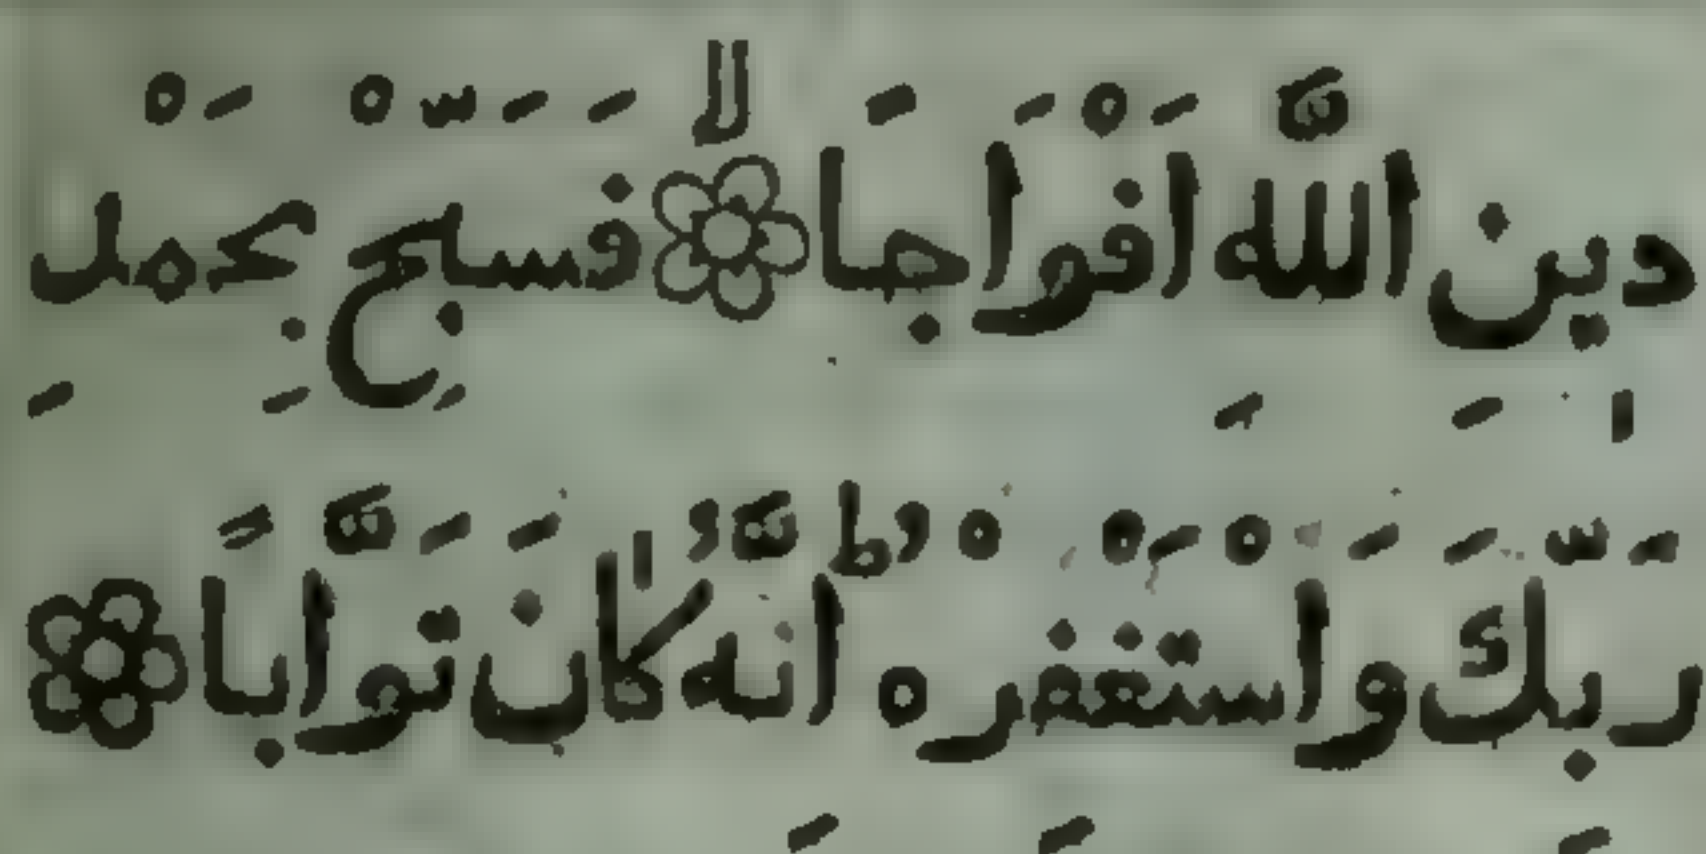 دِيْنِ اللّٰهِ اَفْوَاجًا ۙ فَسَبِّحْ بِحَمْدِ
رَبِّكَ وَاسْتَغْفِرْهُ ؕ اِنَّهٗ كَانَ تَوَّابًا